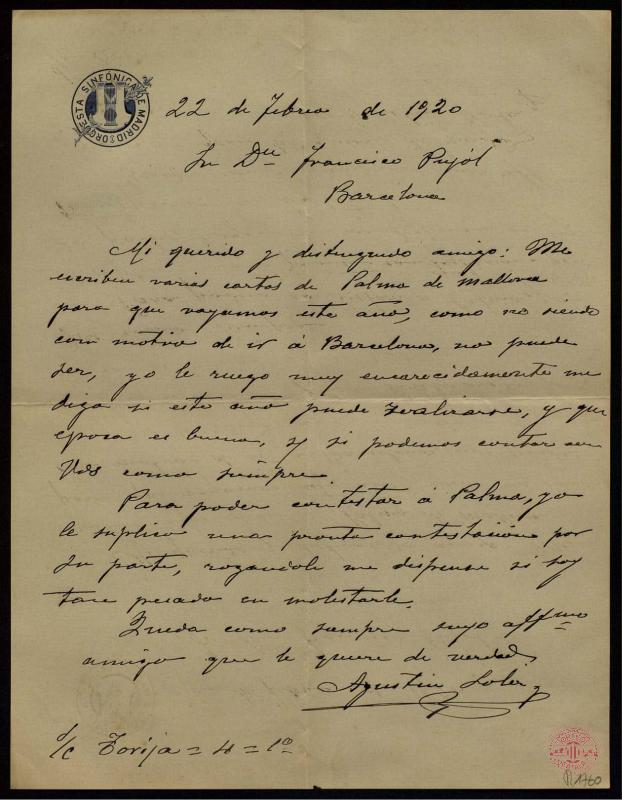 ORQUESTA SINFÓNICA DE MADRID
22 de Febrero de 1920
Sr Dn Francisco Pujól
Barcelona
Mi querido y distinguido amigo: Me
escriben varias cartas de Palma de Mallorca
para que vayamos este año, como no siendo
con motivo de ir á Barcelona, no puede
ser, yo le ruego muy encarecidamente me
diga si este año puede realizarse, y que
epoca es buena, y si podemos contar con
Vds como siempre.
Para poder contestar á Palma, yo
le suplico una pronta contestación por
su parte, rogandole me dispense si soy
tan pesado en molestarle.
Queda como siempre suyo affmo
amigo que le quiere de verdad
Agustin Soler
s/c Torija = 4 = 1º
M 1760